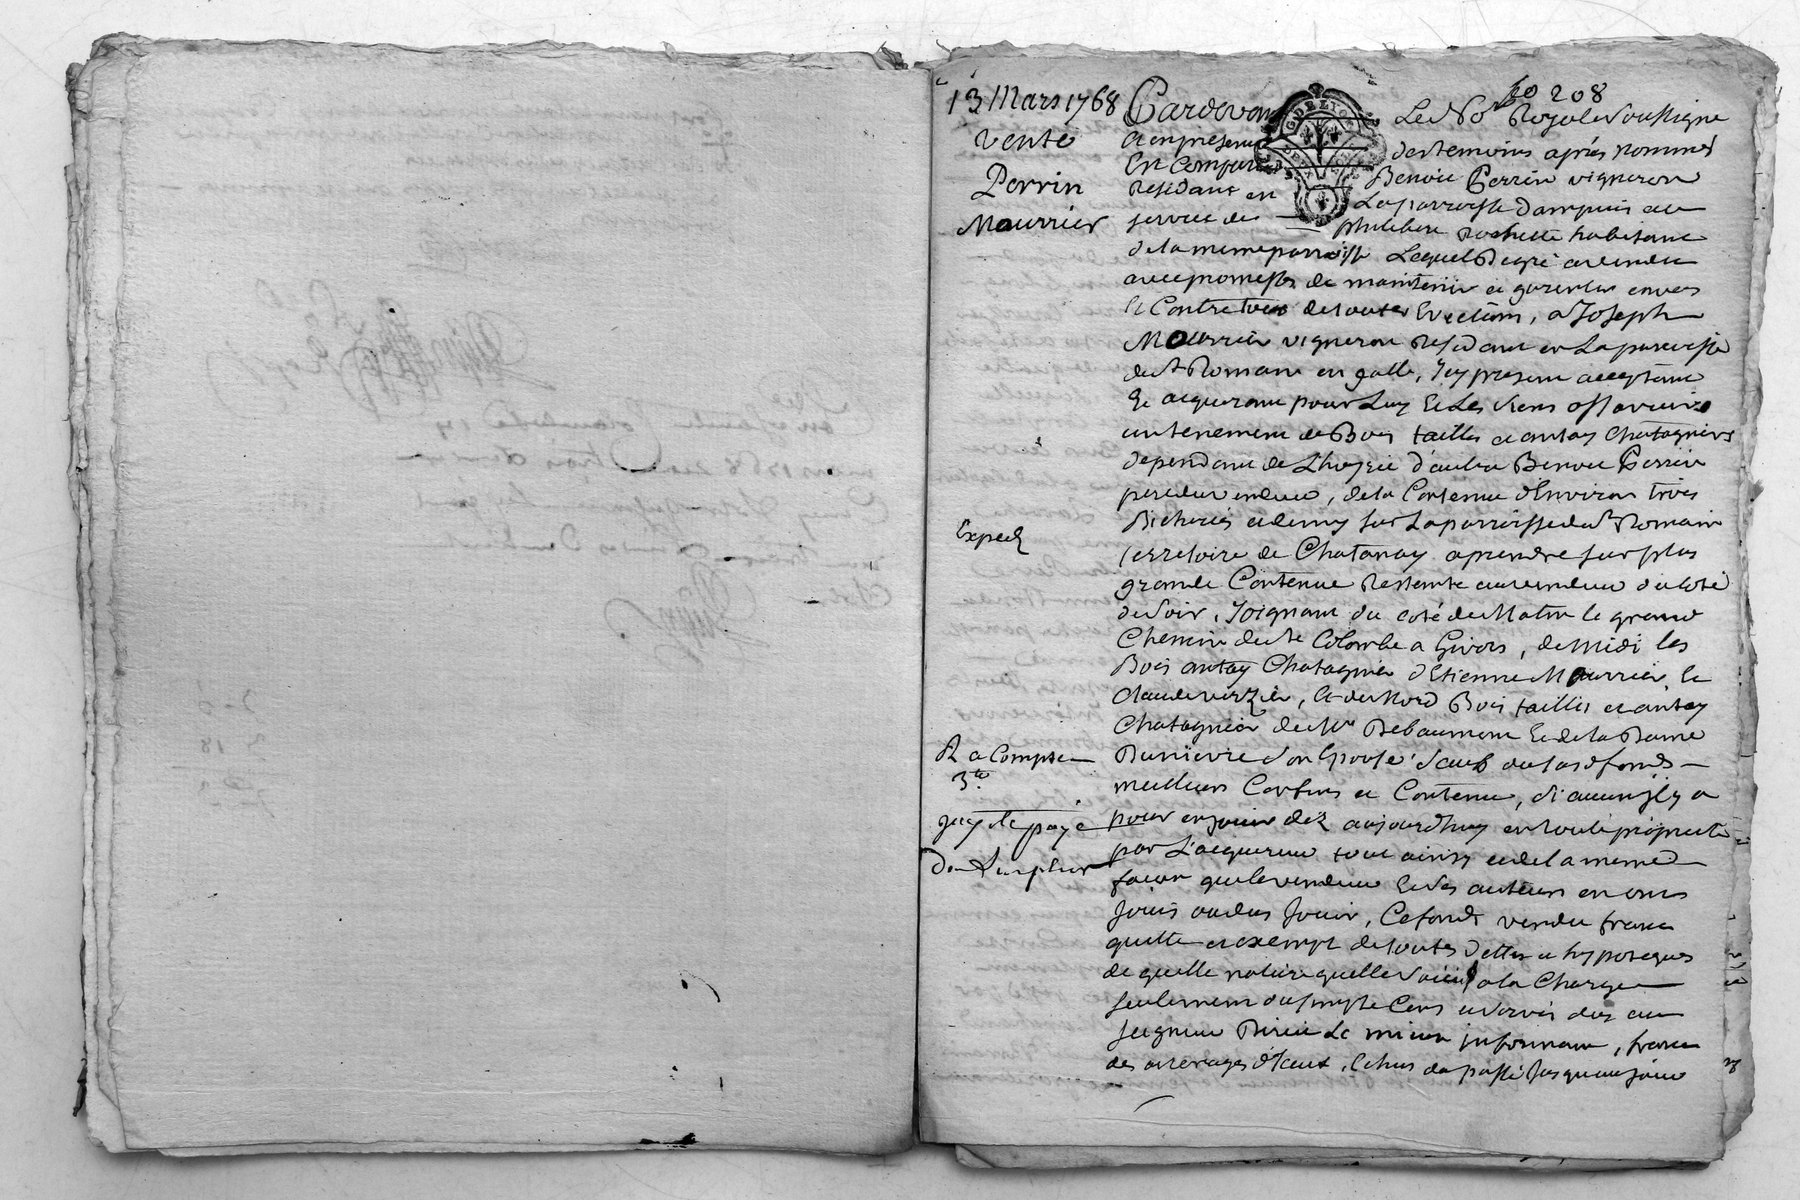 208
13 Mars 1768
Vente
Perrin
Mourrier
Expedz
R a Compte
3.tt
jay ete payé
du surplus
Pardevant Le No.re Royal Soussigne
et en presence des temoins apres nommes
Est Comparu Benoit Perrin vigneron
Residant en La parroisse dampuis au
service de philibert Rochette habitant
de la meme parroisse Lequel de gré a vendu
avec promesses de maintenir et garentir envers
Et Contre tous de toutes Evictions, a Joseph
Mourrier vigneron Residant en La parroisse
de St Romain en galle, Icy present acceptant
Et acquerant pour Luy Et Les siens assavoir
un tenement de Bois taillis et antay Chatagniers
dependant de L'hoyrie d'autre Benoit Perrin
pere du vendeur, de la Contenue d'Environ trois
Bicherées et demy sur La parroisse de St Romain
terretoire de Chatanay a prendre sur plus
grande Contenue Restante au vendeur du coté
de soir, Joignant du coté de Matin le grand
Chemin de Ste Colombe a Givors, de Midi les
Bois antay Chatagnier d'Etienne Mourrier Et
Claude verzier, Et de Nord Bois taillis et antay
Chatagnier de Mr Debaumont Et de la Dame
son Epouse sauf dudit fonds
meilleurs Confins et Contenue, si aucun jl y a
pour en jouir dez aujourdhuy en toute propriété
par L'acquereur tout ainsy et de la meme
façon que le vendeur Et ses auteurs en ont
Joui ou dus Jouir, Ce fonds vendu franc
quitte et exempt de toutes dettes et hypoteques
de quelle nature quelle soient a la Charge
seulement du simple Cens et servis dus au
seigneur Direct Le mieux informant, franc
des arrerages d'Iceux, Echus du passé Jusqu'au jour